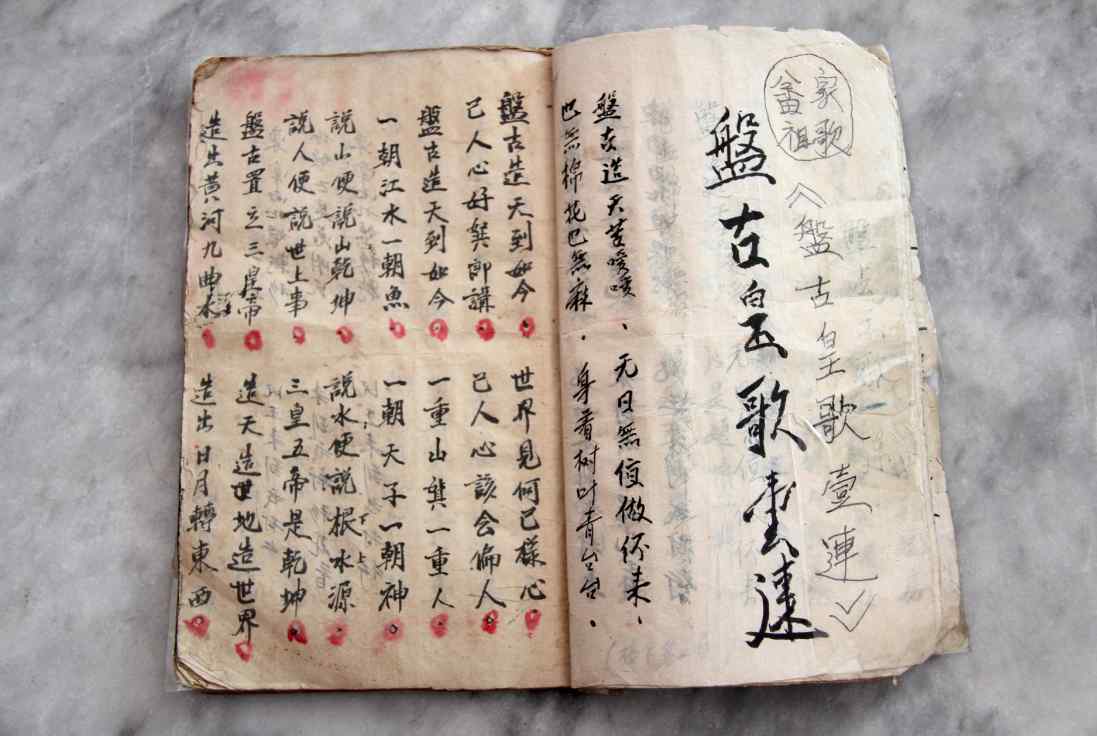 畬家
祖歌
〈盤古皇歌壹連〉
盤古皇歌壹連
盤古造天苦嗳嗳、无日無值做伓来、
也無棉花也無麻、身着树叶青台台、
盤古造天到如今 世界見何己樣心
己人心好㒰郎講 己人心該会偷人
盤古造天到如今 一重山㒰一重人
一朝江水一朝魚 一朝天子一朝神
説山便説山乾坤 説水便説根水源
説人便説世上事 三皇五帝是乾坤
盤古置立三皇帝 造天造世地造世界
造出黄河九曲水 造出日月轉東西